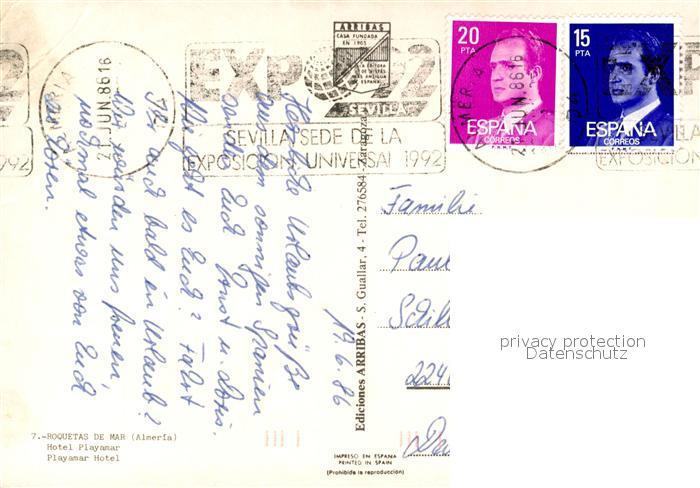 ARRIBAS
CASA FUNDADA
EN 1905
EXPO 92
SEVILLA
SEVILLA SEDE DE LA
EXPOSICION UNIVERSAL 1992
21 JUN. 86 16
20
PTA
ESPAÑA
CORREOS
F.N.M.T.
15
PTA
ESPAÑA
CORREOS
F.N.M.T.
1992
EXPOSICION
19.6.86
Herzliche Urlaubsgrüße
aus dem sonnigen Spanien
senden Euch Horst u. Doris.
Wie geht es Euch? Fahrt
Ihr auch bald in Urlaub?
Wir würden uns freuen,
nochmal etwas von Euch
zu hören.
Ediciones ARRIBAS - S. Guallar, 4 - Tel. 276584 - Zaragoza
Familie
Paul
224
privacy protection
Datenschutz
7.-ROQUETAS DE MAR (Almería)
Hotel Playamar
Playamar Hotel
IMPRESO EN ESPAÑA
PRINTED IN SPAIN
(Prohibida la reproducción)